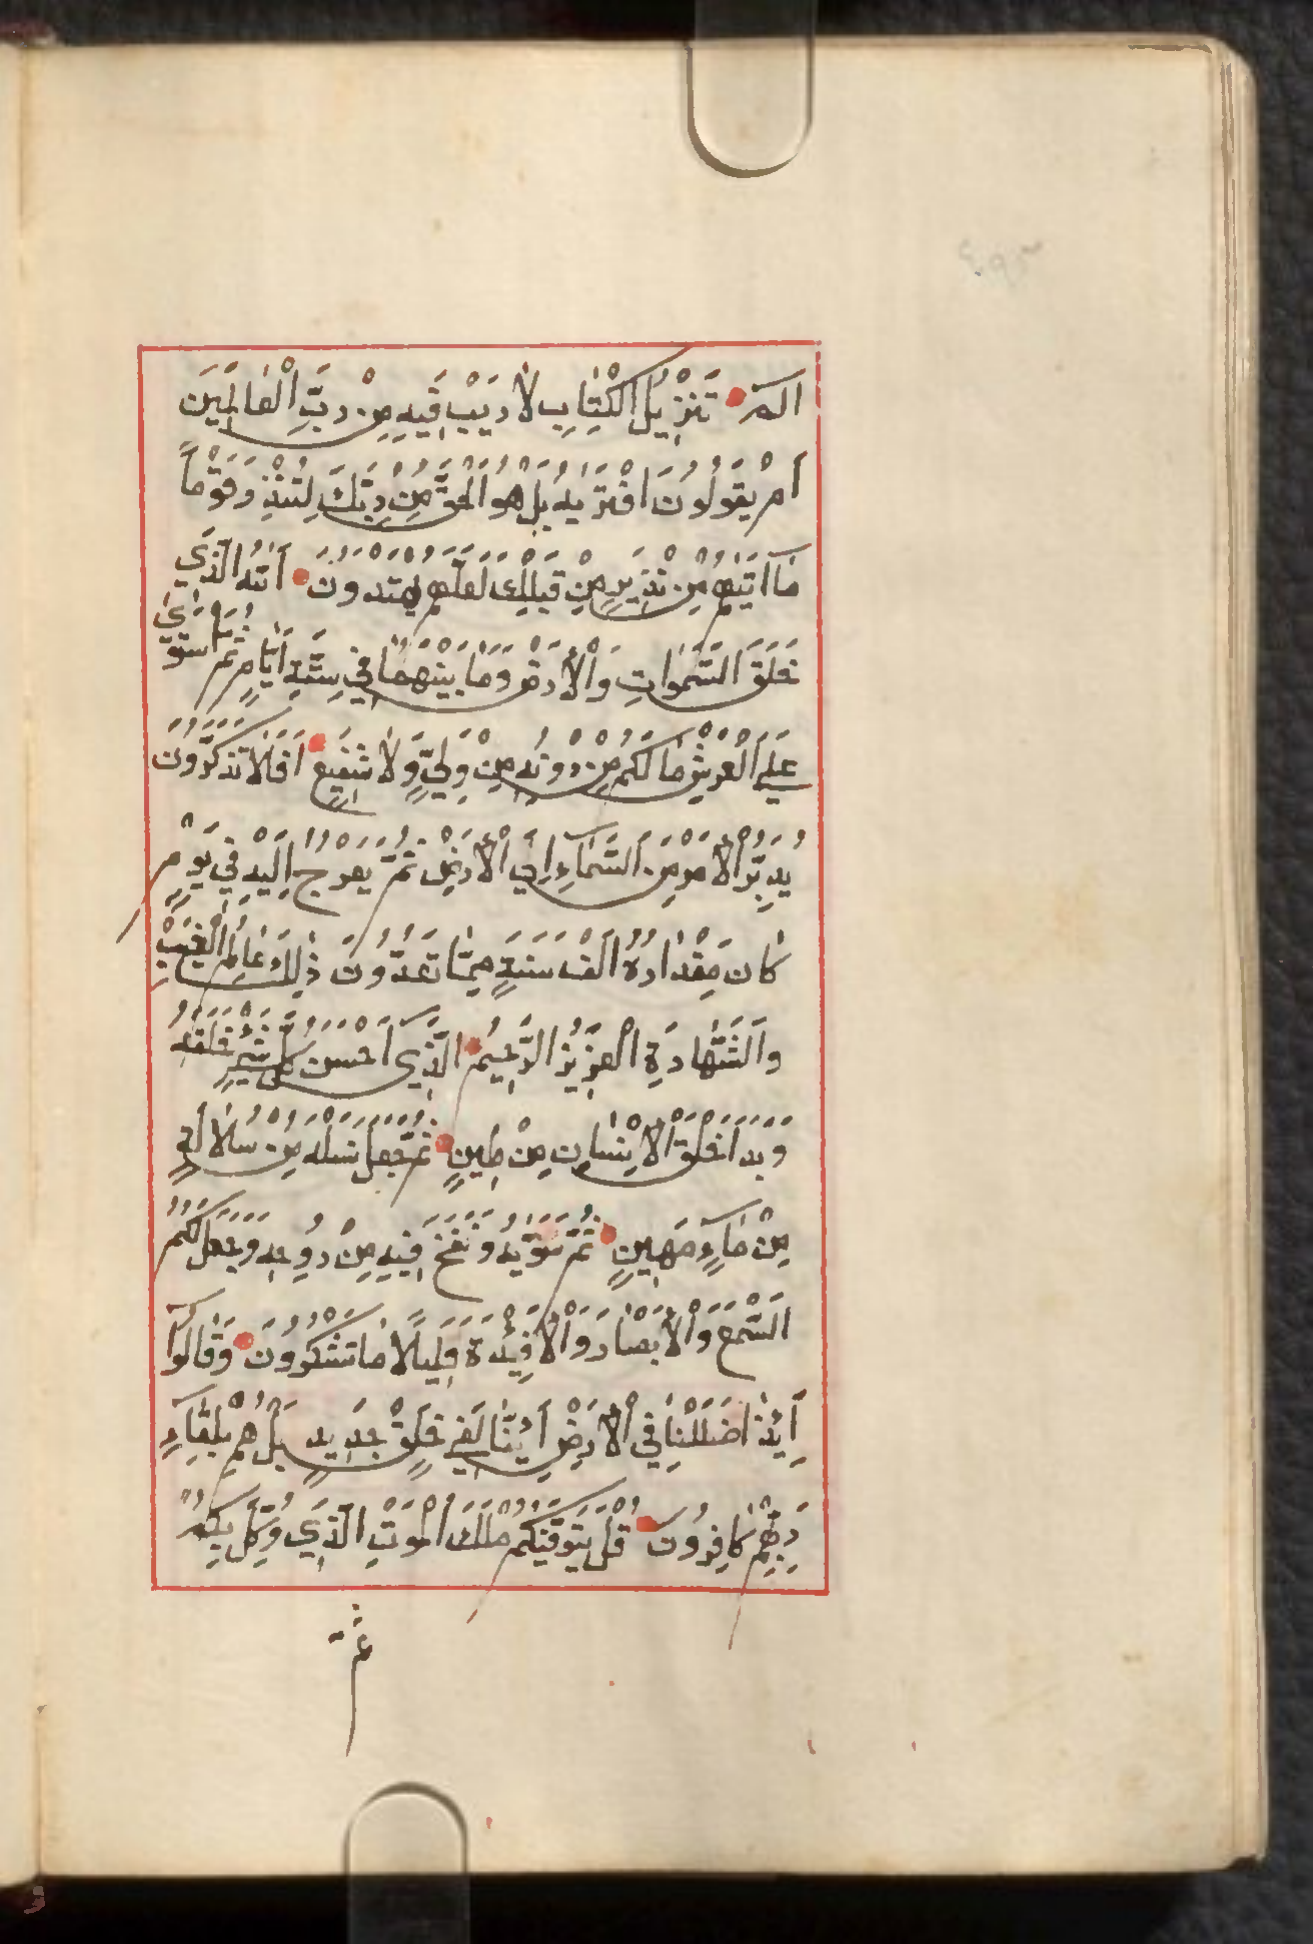 الم تَنْزِيلُ الْكِتَابِ لَا رَيْبَ فِيهِ مِنْ رَبِّ الْعَالَمِينَ
أَمْ يَقُولُونَ افْتَرَيهُ بَلْ هُوَ الْحَقُّ مِنْ رَبِّكَ لِتُنْذِرَ قَوْمًا
مَا أَتَيهُمْ مِنْ نَذِيرٍ مِنْ قَبْلِكَ لَعَلَّهُمْ يَهْتَدُونَ اَللّٰهُ الَّذِي
خَلَقَ السَّمٰوَاتِ وَالْأَرْضَ وَمَا بَيْنَهُمَا فِي سِتَّةِ أَيَّامٍ ثُمَّ اسْتَوٰى
عَلَى الْعَرْشِ مَا لَكُمْ مِنْ دُونِهِ مِنْ وَلِيٍّ وَلَا شَفِيعٍ أَفَلَا تَتَذَكَّرُونَ
يُدَبِّرُ الْأَمْرَ مِنَ السَّمَآءِ إِلَى الْأَرْضِ ثُمَّ يَعْرُجُ إِلَيْهِ فِي يَوْمٍ
كَانَ مِقْدَارُهُ أَلْفَ سَنَةٍ مِمَّا تَعُدُّونَ ذٰلِكَ عَالِمُ الْغَيْبِ
وَالشَّهَادَةِ الْعَزِيزُ الرَّحِيمُ الَّذِي أَحْسَنَ كُلَّ شَيْءٍ خَلَقَهُ
وَبَدَأَ خَلْقَ الْإِنْسَانِ مِنْ طِينٍ ثُمَّ جَعَلَ نَسْلَهُ مِنْ سُلَالَةٍ
مِنْ مَآءٍ مَهِينٍ ثُمَّ سَوَّيهُ وَنَفَخَ فِيهِ مِنْ رُوحِهِ وَجَعَلَ لَكُمُ
السَّمْعَ وَالْأَبْصَارَ وَالْأَفْئِدَةَ قَلِيلًا مَا تَشْكُرُونَ وَقَالُوا
أَئِذَا ضَلَلْنَا فِي الْأَرْضِ أَئِنَّا لَفِي خَلْقٍ جَدِيدٍ بَلْ هُمْ بِلِقَآءِ
رَبِّهِمْ كَافِرُونَ قُلْ يَتَوَفّٰيكُمْ مَلَكُ الْمَوْتِ الَّذِي وُكِّلَ بِكُمْ
ثُمَّ